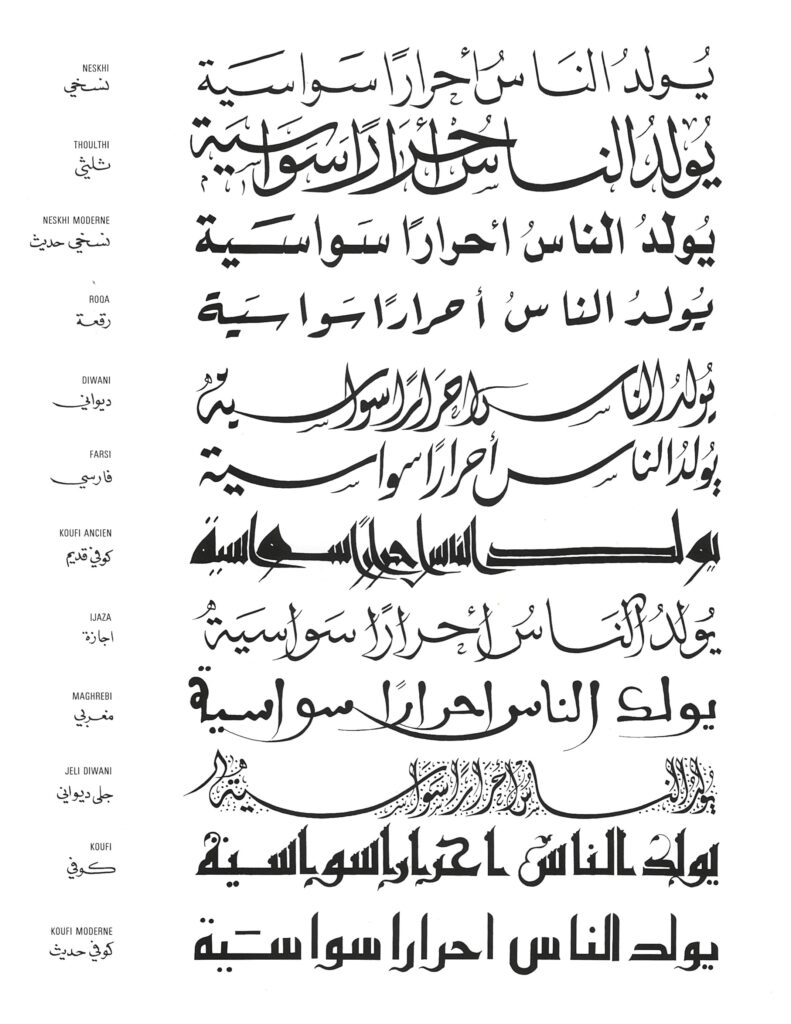 NESKHI
نسخي
يُولدُ النَاسُ أحرارًا سواسية
THOULTHI
ثلثي
يُولَدُ الناسُ أَحْرَارًا سَوَاسَيَة
NESKHI MODERNE
نسخي حديث
يُولدُ الناسُ احرارًا سَواسَية
ROQA
رقعة
يُولدُ الناسُ أحرارًا سَواسَية
DIWANI
ديواني
يُولدُ الناس احرَارًا سواسية
FARSI
فارسي
يُولدُ الناس أحرارًا سواسية
KOUFI ANCIEN
كوفي قديم
يولد الناس احرارًا سواسية
IJAZA
اجازة
يُولَدُ النَاسُ أحرارًا سَواسَية
MAGHREBI
مغربي
يولد الناس احرارًا سواسية
JELI DIWANI
جلى ديواني
يُولدُ الناسُ أحرَارًا سَوَاسية
KOUFI
كوفي
يولد الناس احرارا سواسية
KOUFI MODERNE
كوفي حديث
يولد الناس احرارا سواسَية